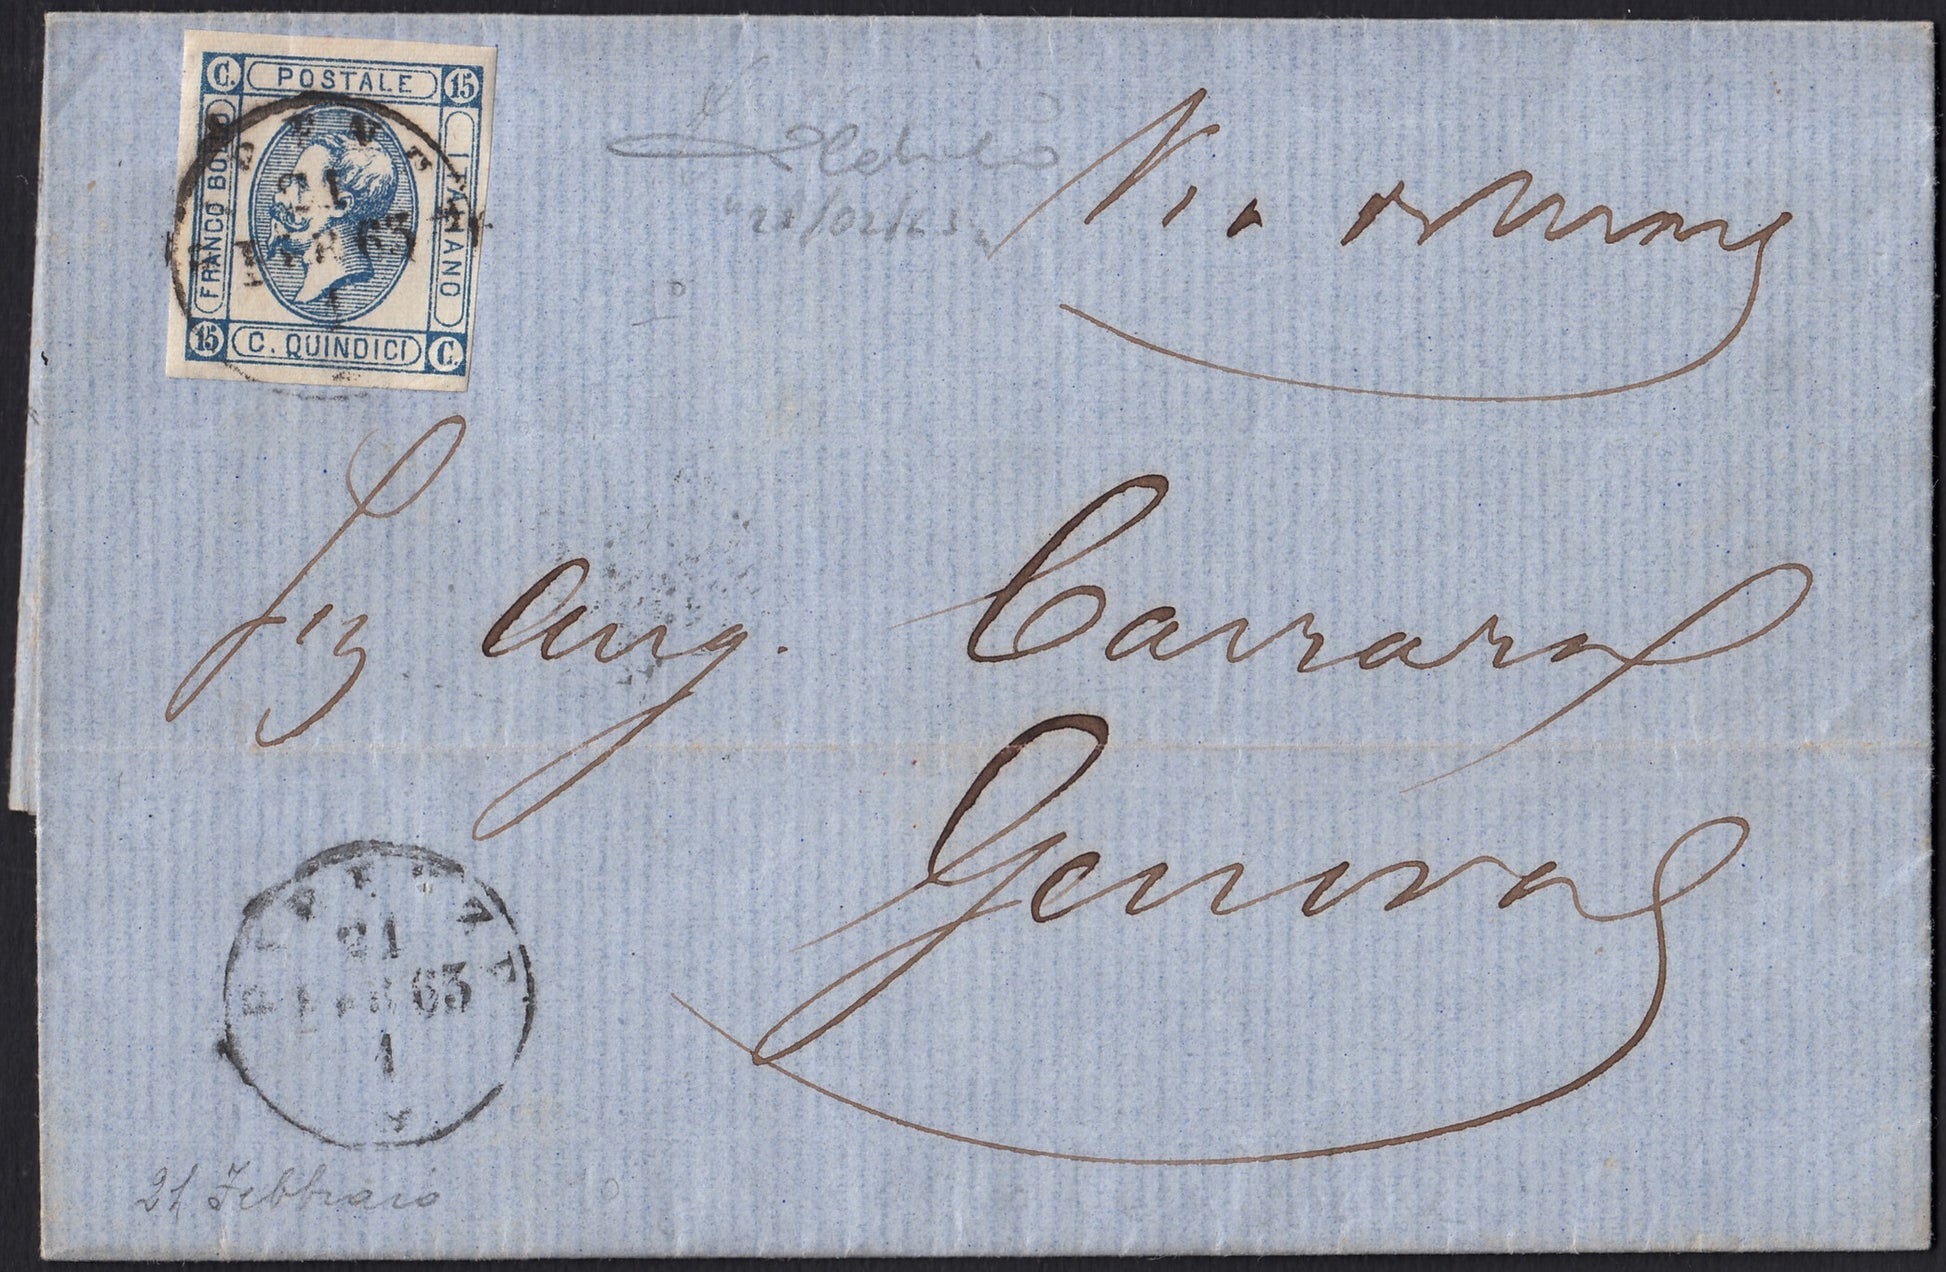 C. POSTALE 15
FRANCO BOLLO
ITALIANO
15 C. QUINDICI C.
21
63
Via di Mare
Sig Aug. Carrara
Genova
FIRENZE
21
63
1
21 Febbraio